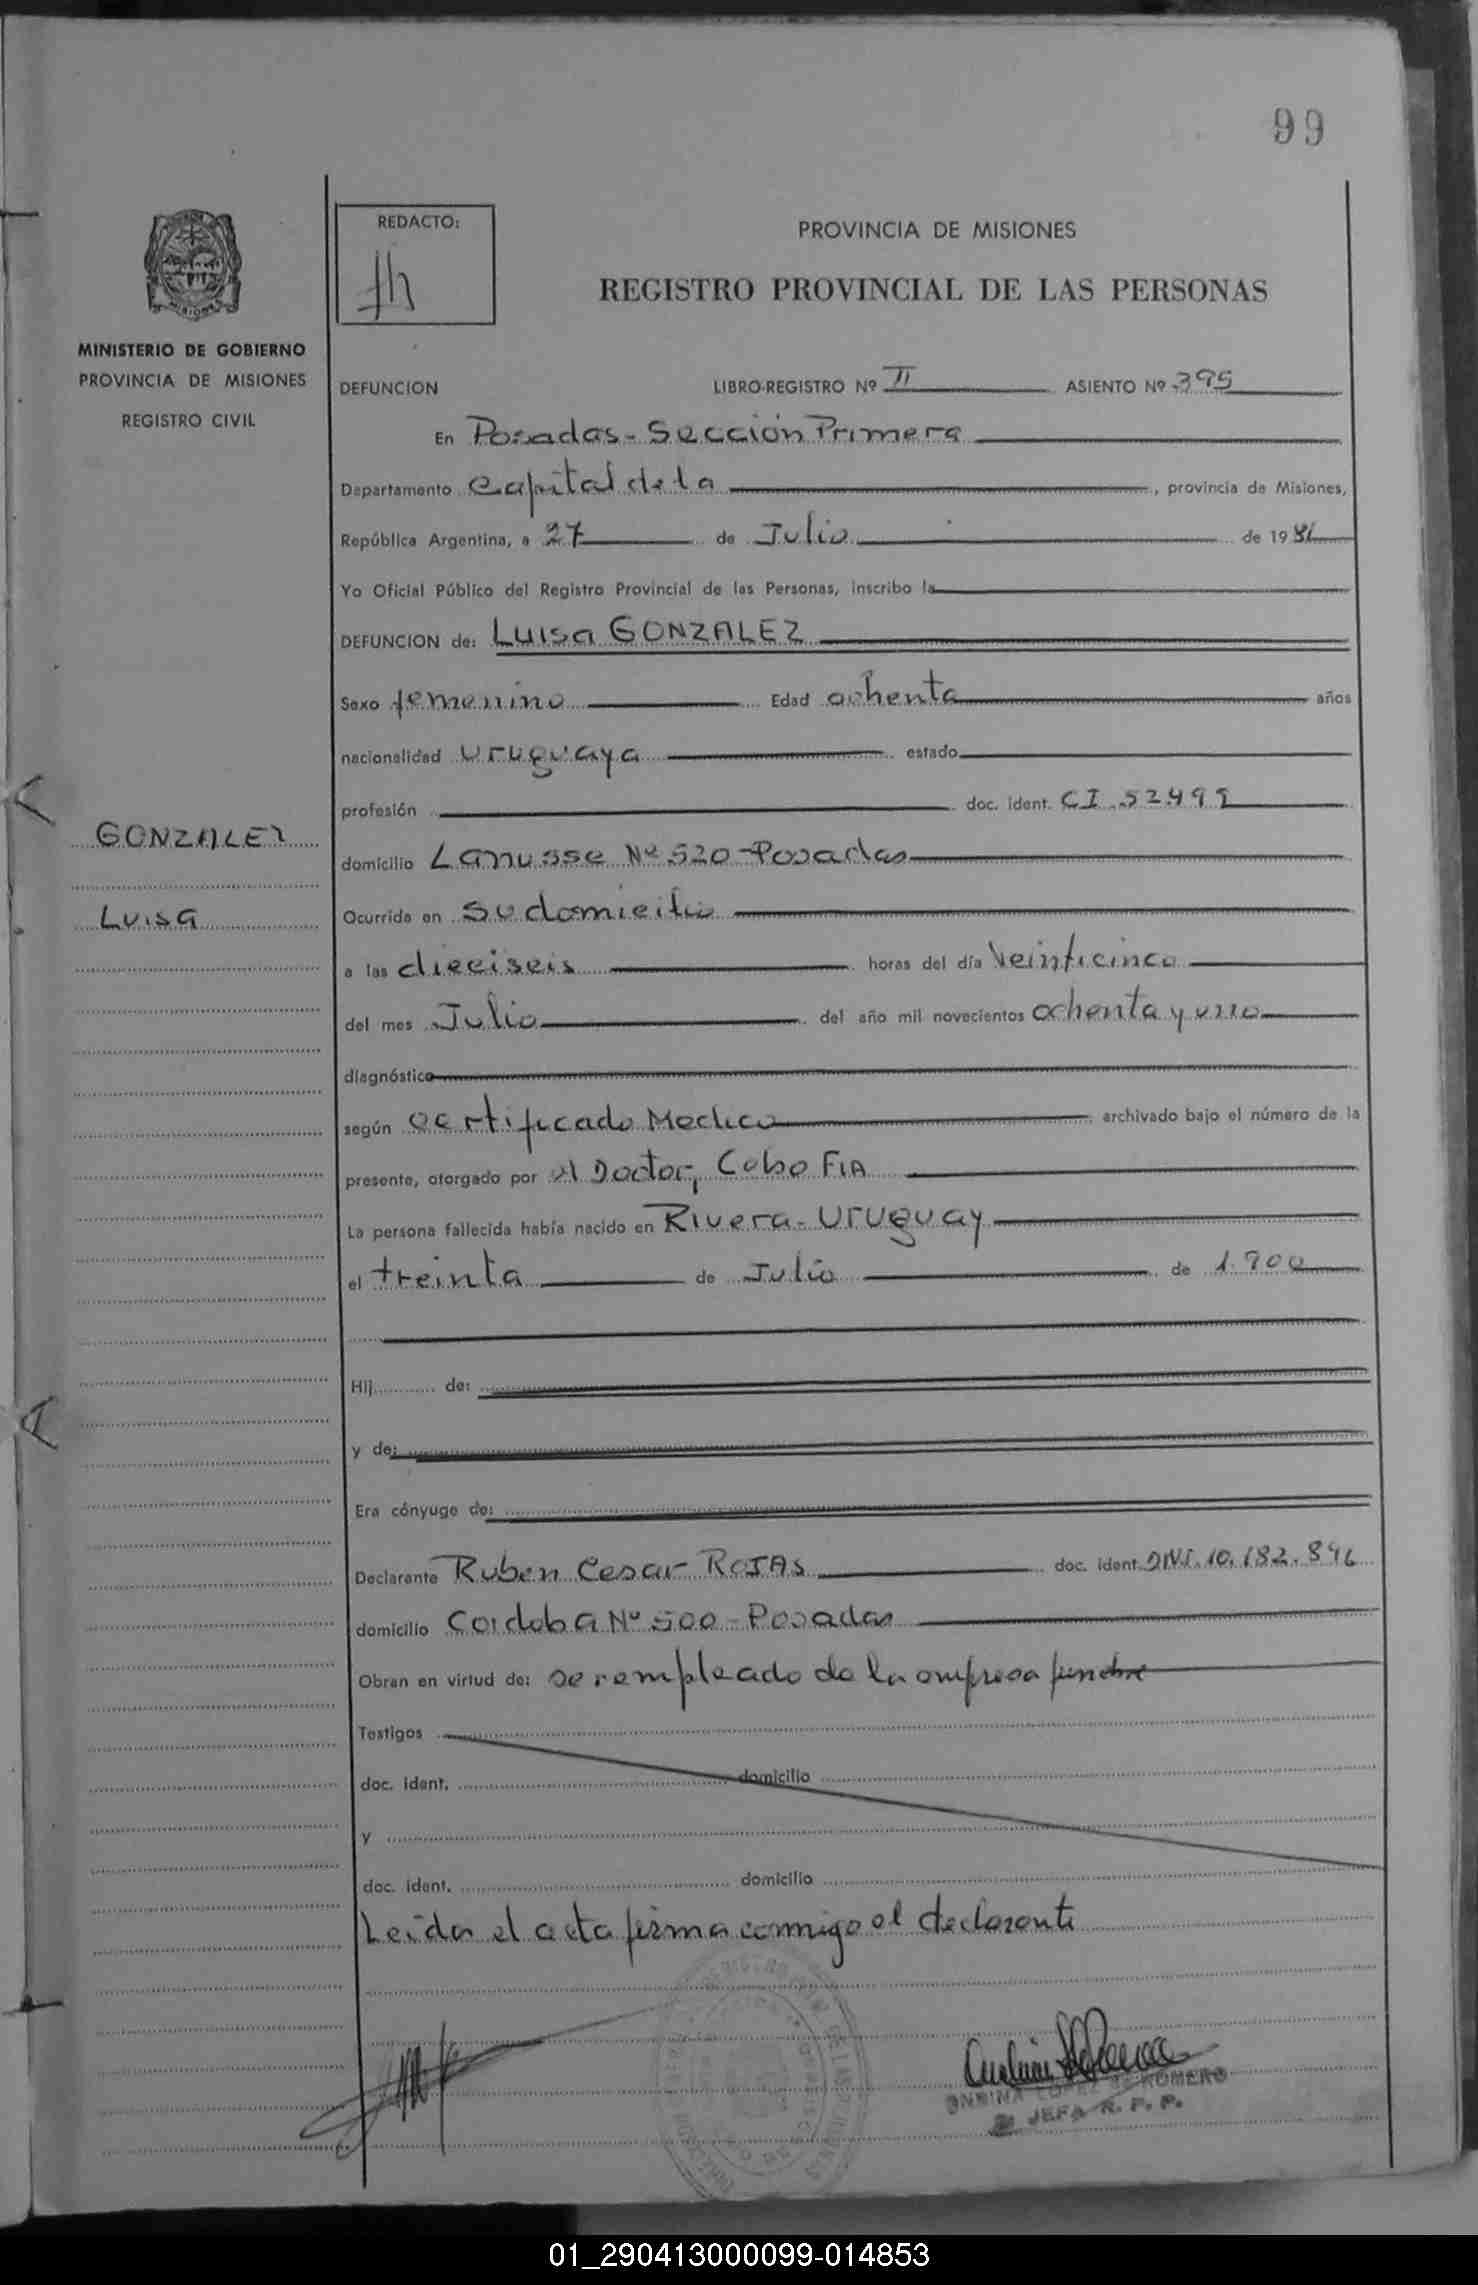 99
REDACTO:
MINISTERIO DE GOBIERNO
PROVINCIA DE MISIONES
REGISTRO CIVIL
PROVINCIA DE MISIONES
REGISTRO PROVINCIAL DE LAS PERSONAS
DEFUNCION LIBRO-REGISTRO Nº II ASIENTO Nº 395
En Posadas - Sección Primera
Departamento Capital de la, provincia de Misiones,
República Argentina, a 27 de Julio de 1981
Yo Oficial Público del Registro Provincial de las Personas, inscribo la
DEFUNCION de: Luisa GONZALEZ
Sexo femenino Edad ochenta años
nacionalidad uruguaya estado
profesión doc. ident. CI 52499
GONZALEZ
domicilio Lanusse Nº 520 - Posadas
LUISA
Ocurrida en su domicilio
a las dieciseis horas del día Veinticinco
del mes Julio del año mil novecientos ochenta y uno
diagnóstico
según certificado Medico archivado bajo el número de la
presente, otorgado por el Doctor, Cobo FIA
La persona fallecida había nacido en Rivera - Uruguay
el treinta de Julio de 1.900
Hij de:
y de:
Era cónyuge de:
Declarante Ruben Cesar ROJAS doc. ident. DNI. 10.182.896
domicilio Cordoba Nº 500 - Posadas
Obran en virtud de: ser empleado de la empresa funebre
Testigos
doc. ident. domicilio
y
doc. ident. domicilio
Leida el acta firma conmigo el declarante
LOPEZ DE ROMERO
JEFA R. P. P.
01_290413000099-014853